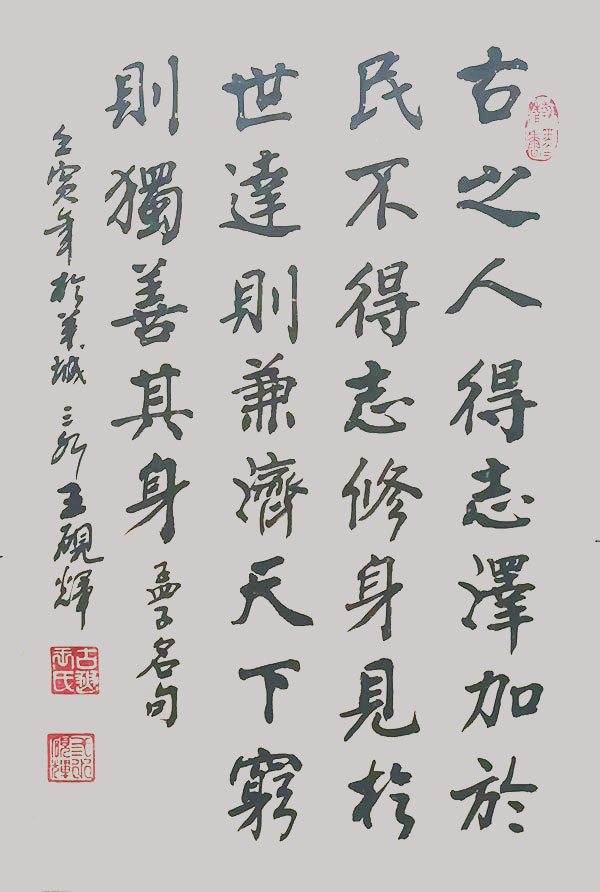 古之人得志澤加於
民不得志修身見於
世達則兼濟天下窮
則獨善其身 孟子名句
壬寅年於羊城 三水 王硯輝